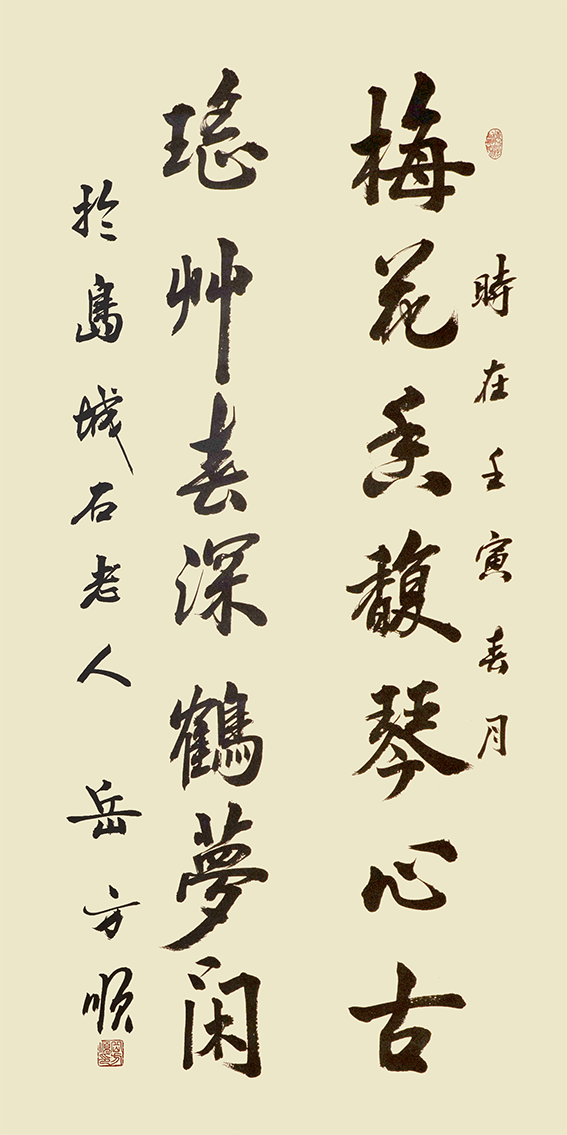 時在壬寅春月
梅花香馥琴心古
瑤艸春深鶴夢闲
於島城石老人 岳方順